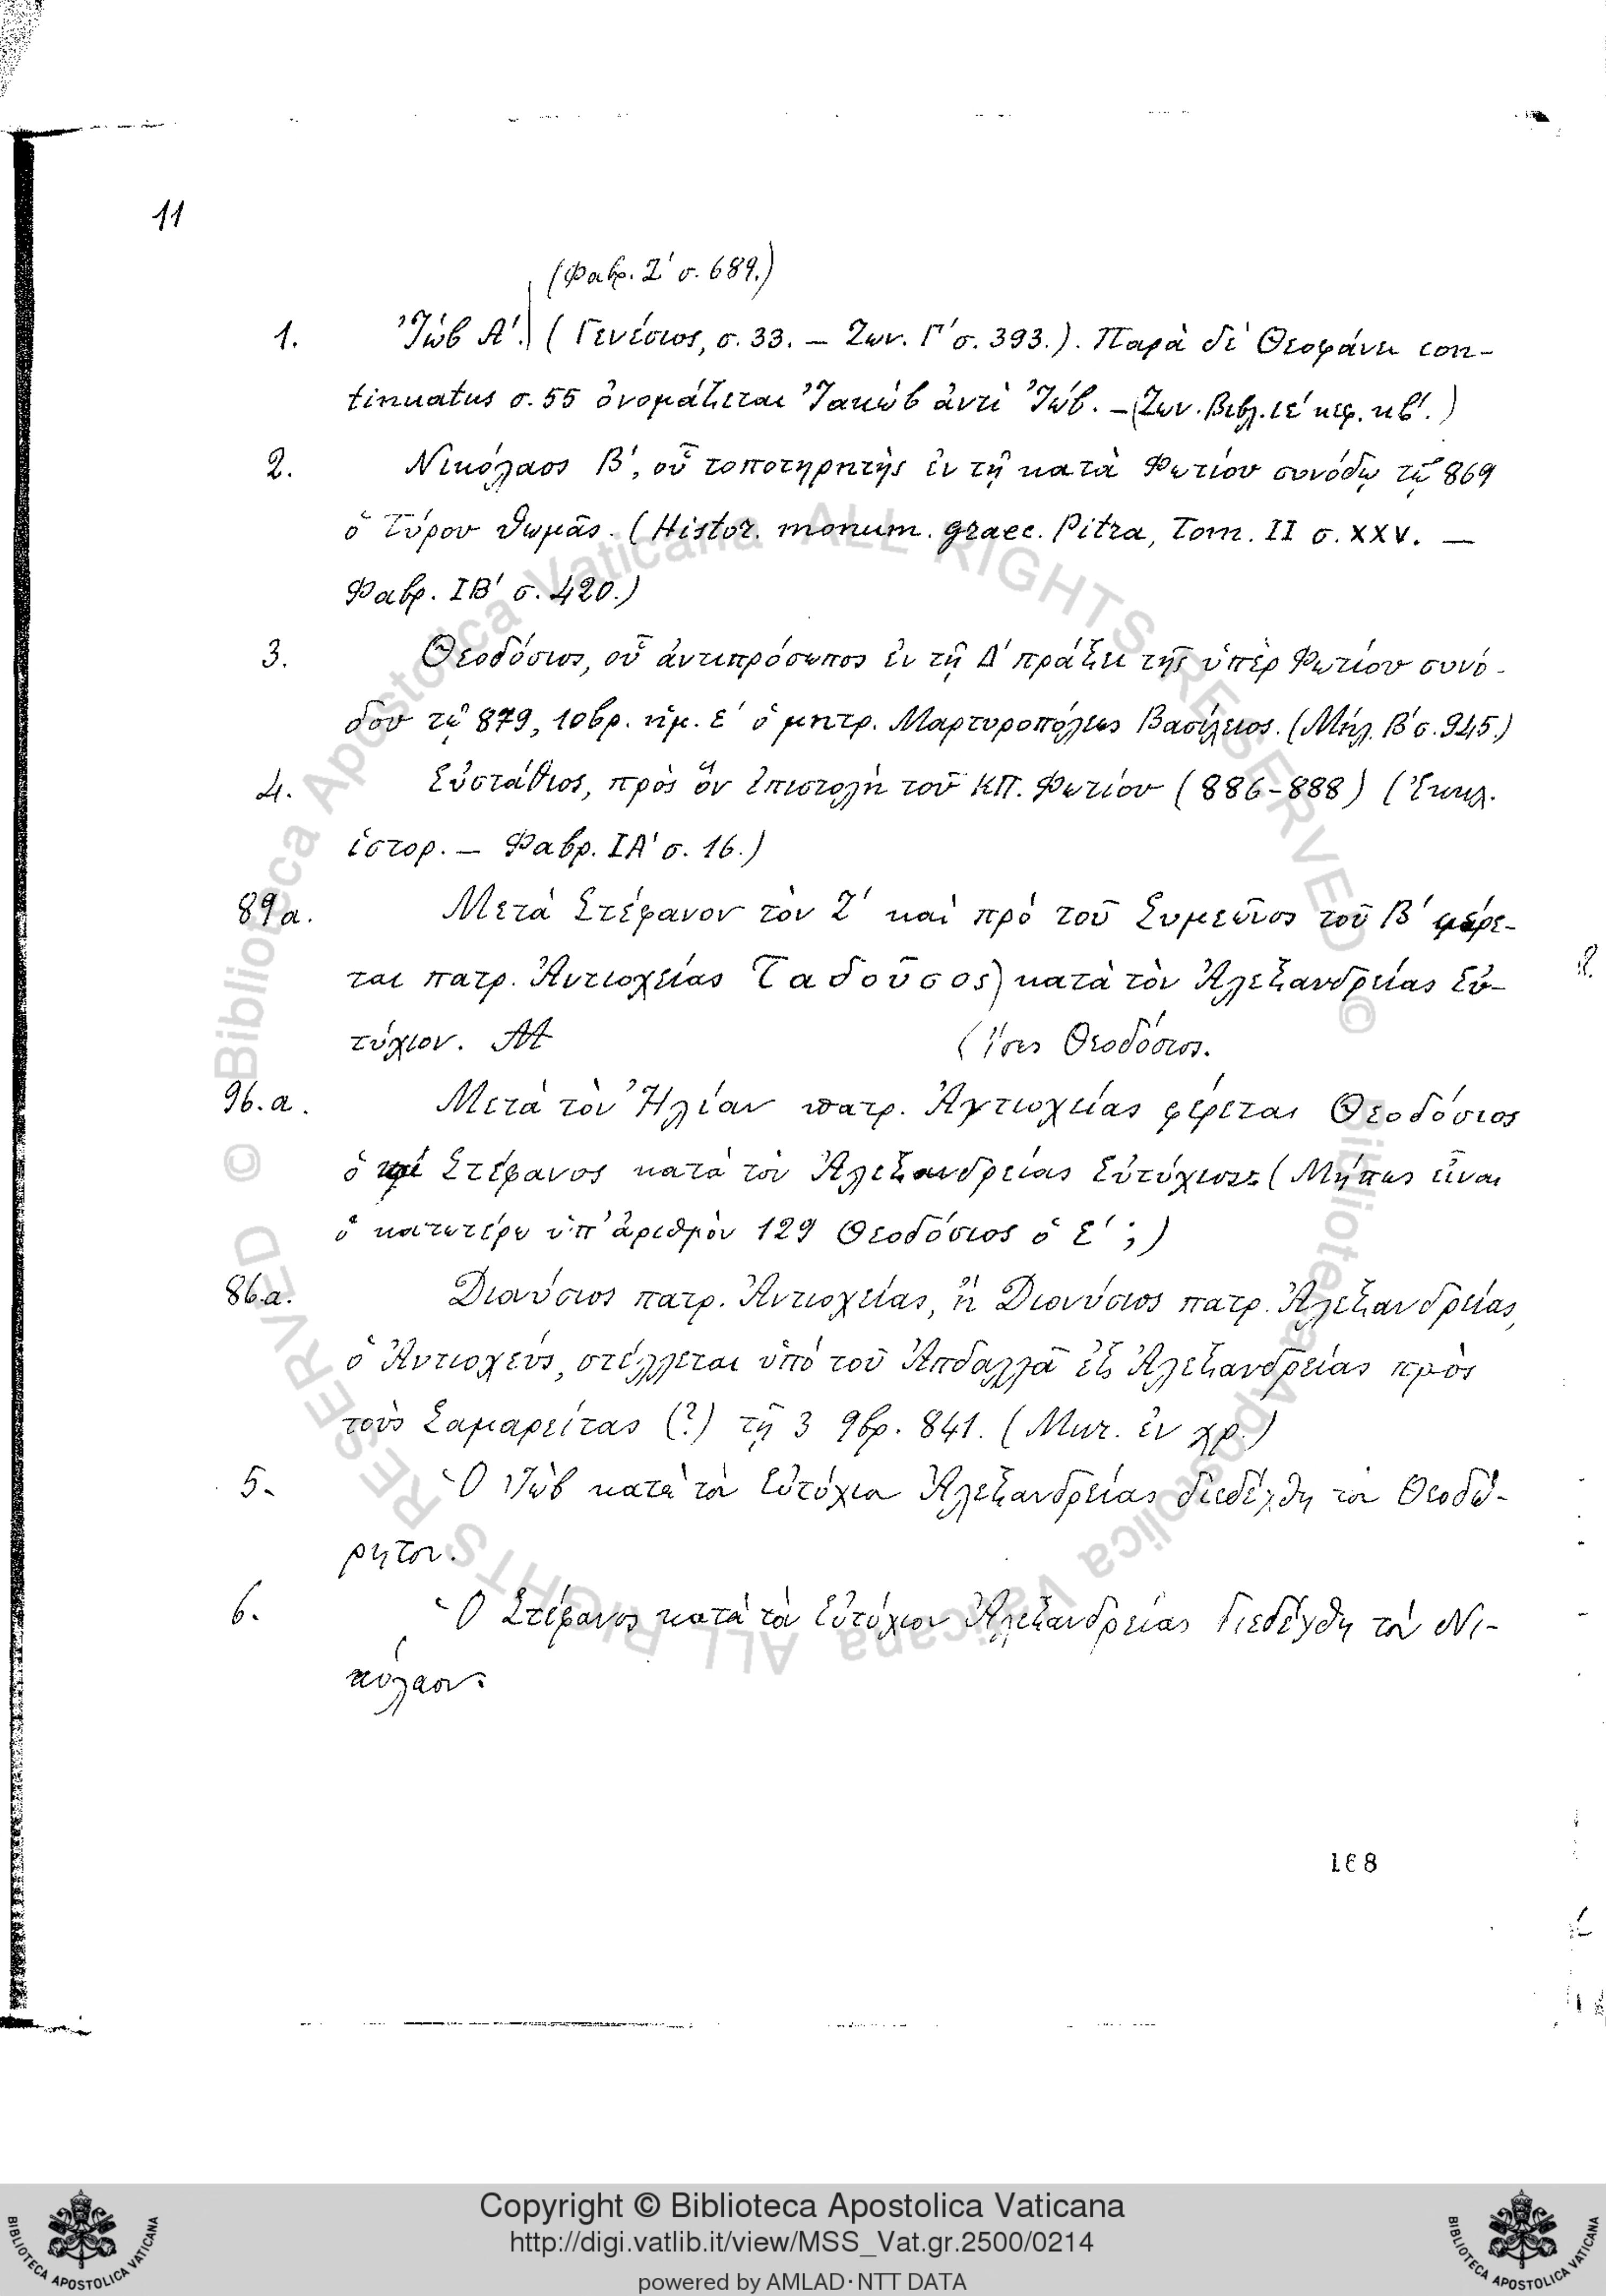 11
(Φαβρ. Ζ' σ. 689.)
1. Ἰὼβ Α'. (Γενέσιος, σ. 33. — Ζων. Γ' σ. 393.). Παρὰ δὲ Θεοφάνει con-
tinuatus σ. 55 ὀνομάζεται Ἰακὼβ ἀντὶ Ἰώβ. — (Ζων. βιβλ. ιε' κεφ. κβ'.)
2. Νικόλαος Β', οὗ τοποτηρητὴς ἐν τῇ κατὰ Φωτίου συνόδῳ τῷ 869
ὁ Τύρου Θωμᾶς. (Histor. monum. graec. Pitra, Tom. II σ. XXV. —
Φαβρ. ΙΒ' σ. 420.)
3. Θεοδόσιος, οὗ ἀντιπρόσωπος ἐν τῇ Δ' πράξει τῆς ὑπὲρ Φωτίου συνό-
δου τῷ 879, 10βρ. ἡμ. ε' ὁ μητρ. Μαρτυροπόλεως Βασίλειος. (Μηλ. Β' σ. 945.)
4. Εὐστάθιος, πρὸς ὃν ἐπιστολὴ τοῦ ΚΠ. Φωτίου (886-888) (Ἐκκλ.
ἱστορ. — Φαβρ. ΙΑ' σ. 16.)
89 a. Μετὰ Στέφανον τὸν Ζ' καὶ πρὸ τοῦ Συμεῶνος τοῦ Β' φέρε-
ται πατρ. Ἀντιοχείας Ταδοῦσος) κατὰ τὸν Ἀλεξανδρείας Εὐ-
τύχιον. (Ἴσως Θεοδόσιος.
96. a. Μετὰ τὸν Ἠλίαν πατρ. Ἀντιοχείας φέρεται Θεοδόσιος
ὁ καὶ Στέφανος κατὰ τὸν Ἀλεξανδρείας Εὐτύχιον (Μήπως εἶναι
ὁ κατωτέρω ὑπ' ἀριθμὸν 129 Θεοδόσιος ὁ Ε' ;)
86.a. Διονύσιος πατρ. Ἀντιοχείας, ἢ Διονύσιος πατρ. Ἀλεξανδρείας,
ὁ Ἀντιοχεύς, στέλλεται ὑπὸ τοῦ Ἀπδαλλᾶ ἐξ Ἀλεξανδρείας πρὸς
τοὺς Σαμαρείτας (?) τῇ 3 9βρ. 841. (Μων. ἐν χρ.)
5. Ὁ Ἰὼβ κατὰ τὸν Εὐτύχιον Ἀλεξανδρείας διεδέχθη τὸν Θεοδώ-
ρητον.
6. Ὁ Στέφανος κατὰ τὸν Εὐτύχιον Ἀλεξανδρείας διεδέχθη τὸν Νι-
κόλαον.
168
© Biblioteca Apostolica Vaticana ALL RIGHTS RESERVED
© Biblioteca Apostolica Vaticana ALL RIGHTS RESERVED
Copyright © Biblioteca Apostolica Vaticana
http://digi.vatlib.it/view/MSS_Vat.gr.2500/0214
powered by AMLAD·NTT DATA
BIBLIOTECA APOSTOLICA VATICANA
BIBLIOTECA APOSTOLICA VATICANA